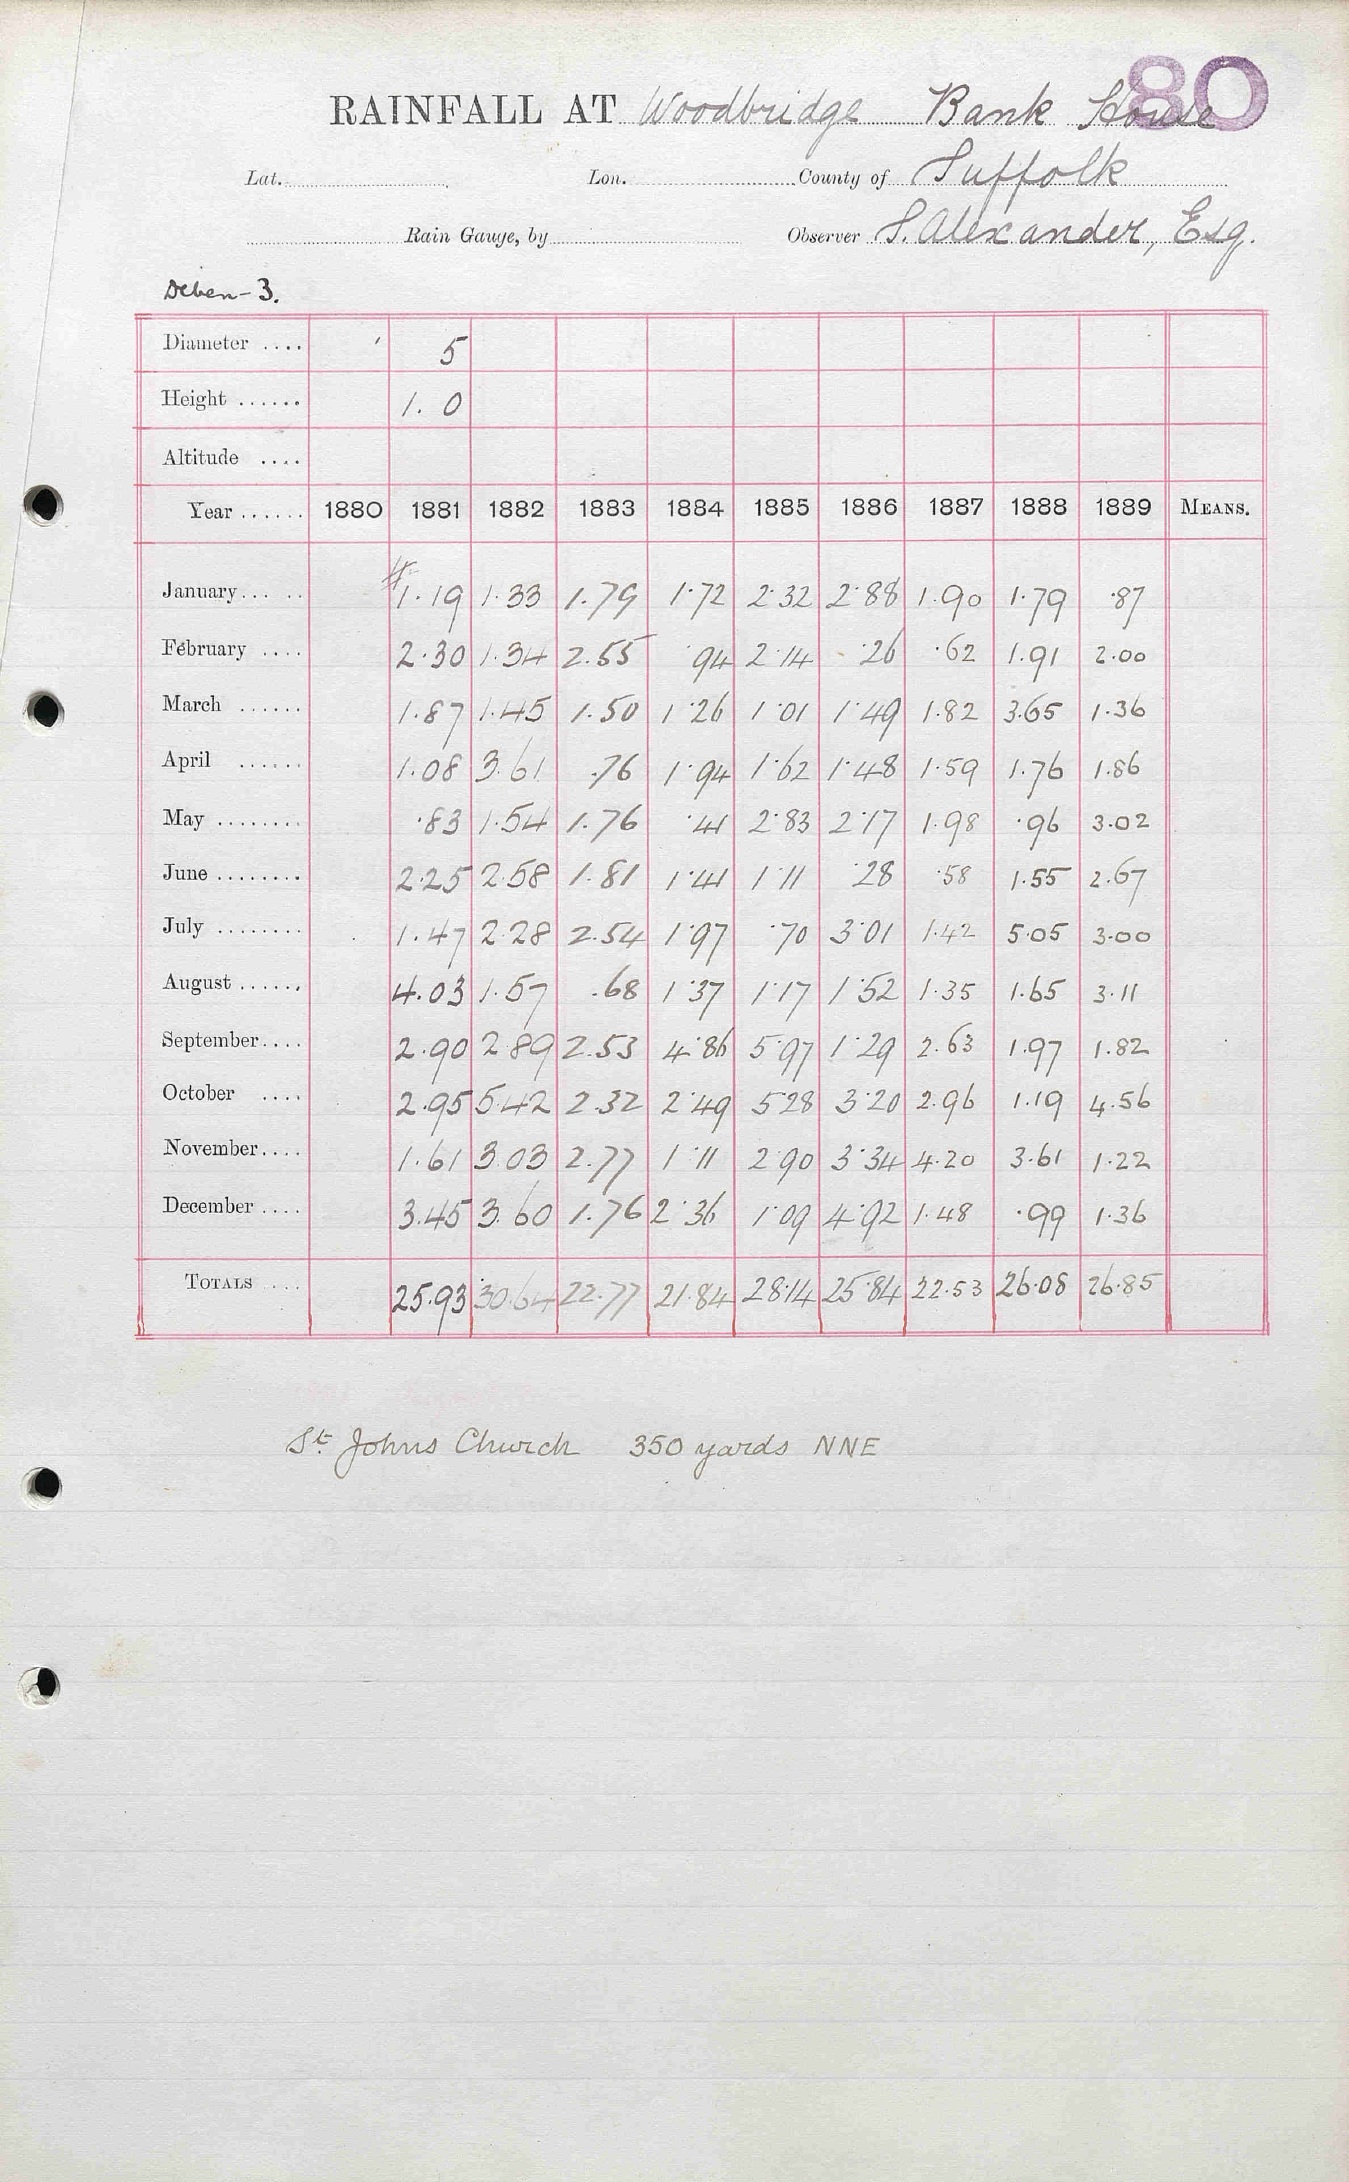 80
RAINFALL AT Woodbridge Bank House
Lat. Lon. County of Suffolk
Rain Gauge, by Observer S. Alexander, Esq.
Deben - 3.
Diameter .... 5
Height ...... 1. 0
Altitude ....
Year ...... 1880 1881 1882 1883 1884 1885 1886 1887 1888 1889 MEANS.
January... .. # 1.19 1.33 1.79 1.72 2.32 2.88 1.90 1.79 .87
February .... 2.30 1.34 2.55 .94 2.14 .26 .62 1.91 2.00
March ...... 1.87 1.45 1.50 1.26 1.01 1.49 1.82 3.65 1.36
April ...... 1.08 3.61 .76 1.94 1.62 1.48 1.59 1.76 1.86
May ........ .83 1.54 1.76 .41 2.83 2.17 1.98 .96 3.02
June ........ 2.25 2.58 1.81 1.41 1.11 .28 .58 1.55 2.67
July ........ 1.47 2.28 2.54 1.97 .70 3.01 1.42 5.05 3.00
August ...... 4.03 1.57 .68 1.37 1.17 1.52 1.35 1.65 3.11
September.... 2.90 2.89 2.53 4.86 5.97 1.29 2.63 1.97 1.82
October .... 2.95 5.42 2.32 2.49 5.28 3.20 2.96 1.19 4.56
November.... 1.61 3.03 2.77 1.11 2.90 3.34 4.20 3.61 1.22
December .... 3.45 3.60 1.76 2.36 1.09 4.92 1.48 .99 1.36
TOTALS .... 25.93 30.64 22.77 21.84 28.14 25.84 22.53 26.08 26.85
St Johns Church 350 yards NNE